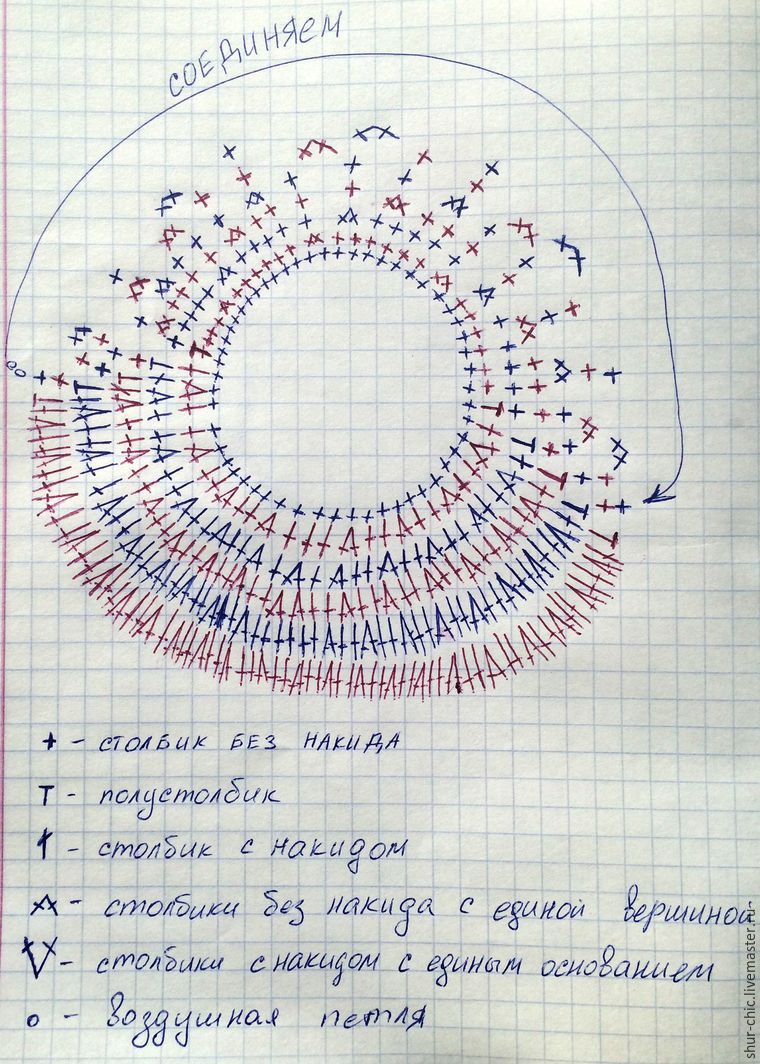 СОЕДИНЯЕМ
+ - СТОЛБИК БЕЗ НАКИДА
т - полустолбик
† - столбик с накидом
- столбики без накида с единой вершиной
V - столбики с накидом с единым основанием
о - воздушная петля
shur-chic.livemaster.ru